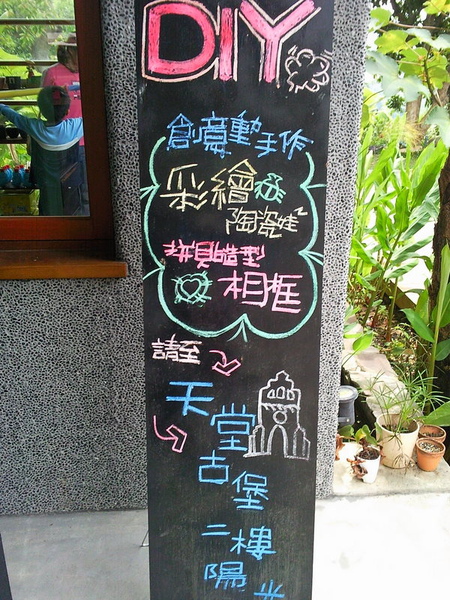 DIY
創意動手作
彩繪
陶瓷娃
拼貝殼造型
相框
請至
天堂
古堡
二樓
陽光